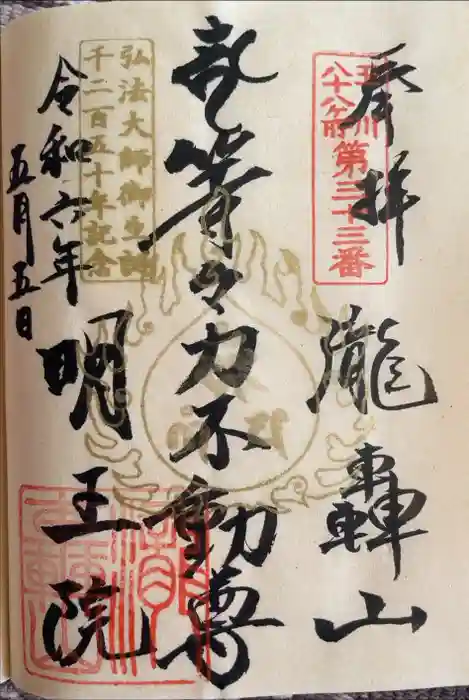 奉拝
玉川
八十八ヶ所
第三十三番
瀧轟山
等々力不動尊
弘法大師御生誕
千二百五十年記念
令和六年
五月五日
明王院